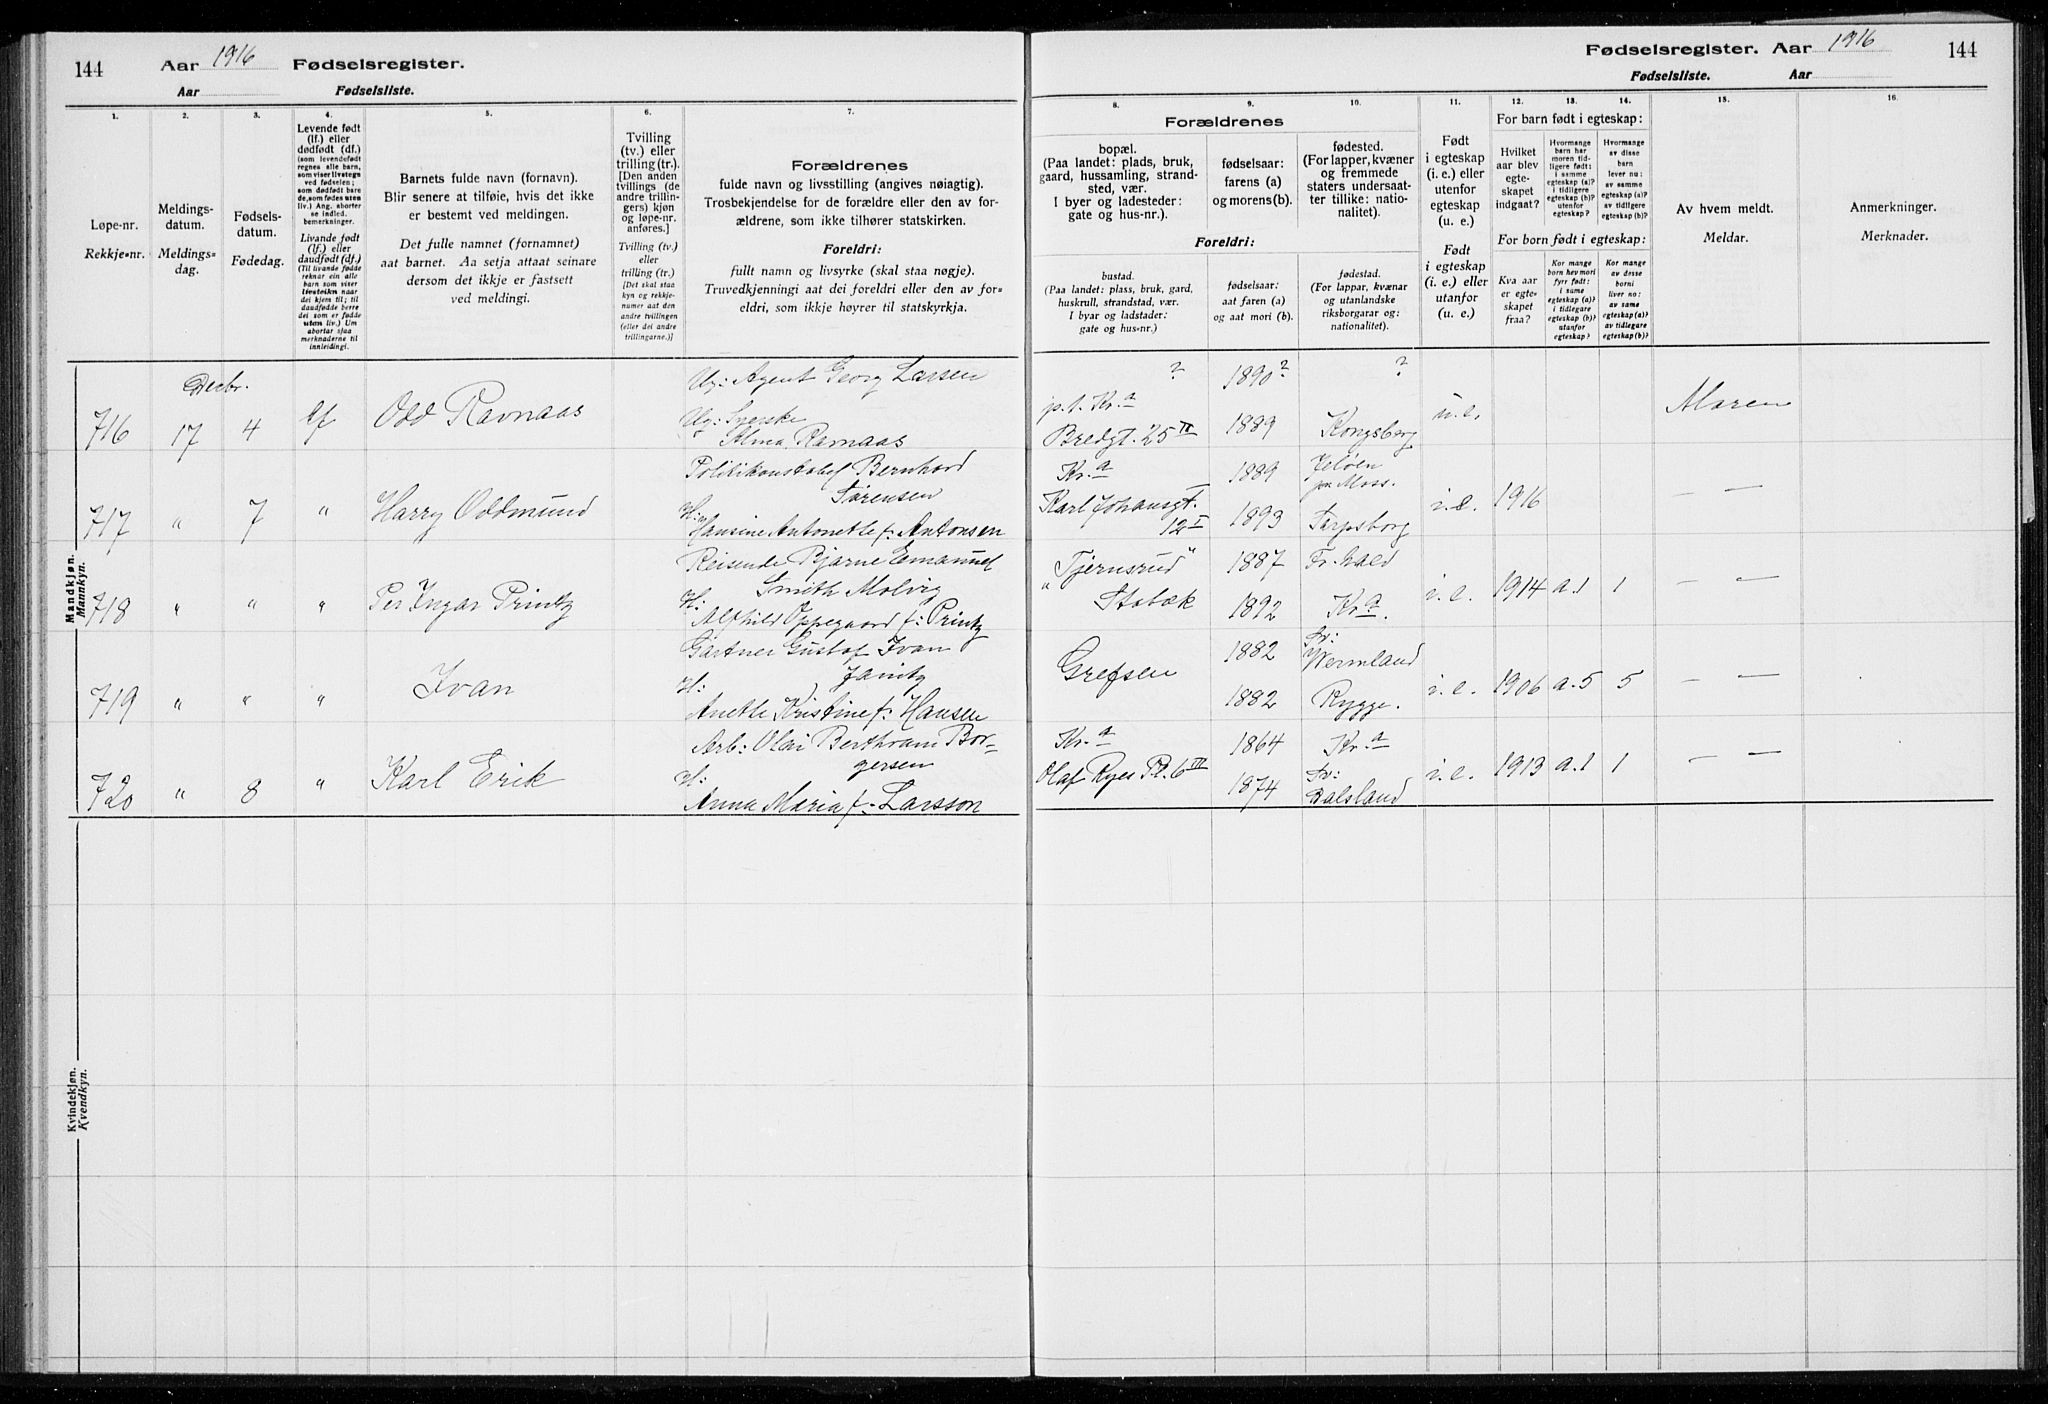 144 Aar 1916 Fødselsregister.
Aar Fødselsliste.
1.
Løpe-nr.
Rekkje-nr.
2.
Meldings-
datum.
Meldings-
dag.
3.
Fødsels-
datum.
Fødedag.
4.
Levende født
(lf.) eller
dødfødt (df.)
(som levendefødt
regnes alle barn,
som viser livstegn
ved fødselen;
som dødfødt bare
de, som fødes uten
liv.) Ang. aborter
se indled.
bemerkninger.
Livande født
(lf.) eller
daudfødt (df.)
(Til livande fødde
reknar ein alle
barn som viser
livsteikn naar
dei kjem til; til
daudfødde berre
dei som er fødde
uten liv.) Um
abortar sjaa
merknaderne til
innleidingi.
5.
Barnets fulde navn (fornavn).
Blir senere at tilføie, hvis det ikke
er bestemt ved meldingen.
Det fulle namnet (fornamnet)
aat barnet. Aa setja attaat seinare
dersom det ikkje er fastsett
ved meldingi.
6.
Tvilling
(tv.) eller
trilling (tr.).
[Den anden
tvillings (de
andre trillin-
gers) kjøn
og løpe-nr.
anføres.]
Tvilling (tv.)
eller
trilling (tr.)
[Det skal staa
kyn og rekkje-
numer aat den
andre tvillingen
(eller dei andre
trillingarne.)]
7.
Forældrenes
fulde navn og livsstilling (angives nøiagtig).
Trosbekjendelse for de forældre eller den av for-
ældrene, som ikke tilhører statskirken.
Foreldri:
fullt namn og livsyrke (skal staa nøgje).
Truvedkjenningi aat dei foreldri eller den av for-
eldri, som ikkje høyrer til statskyrkja.
Fødselsregister. Aar 1916 144
Fødselsliste. Aar
8. 9. 10.
Forældrenes
bopæl.
(Paa landet: plads, bruk,
gaard, hussamling, strand-
sted, vær.
I byer og ladesteder:
gate og hus-nr.).
fødselsaar:
farens (a)
og morens (b).
fødested.
(For lapper, kvæner
og fremmede
staters undersaat-
ter tillike: natio-
nalitet).
Foreldri:
bustad.
(Paa landet: plass, bruk, gard,
huskrull, strandstad, vær.
I byar og ladstader:
gate og hus-nr.)
fødselsaar:
aat faren (a)
og aat mori (b).
fødestad.
(For lappar, kvænar
og utanlandske
riksborgarar og:
nationalitet).
11.
Født
i egteskap
(i. e.) eller
utenfor
egteskap
(u. e.)
Født
i egteskap
(i. e.) eller
utanfor
(u. e.)
12. 13. 14.
For barn født i egteskap:
Hvilket
aar blev
egte-
skapet
indgaat?
Hvormange
barn har
moren tid-
ligere født:
i samme
egteskap (a)?
i tidligere
egteskap (b)?
utenfor
egteskap?
Hvormange
av disse
barn
lever nu:
av samme
egteskap (a)?
av tidligere
egteskap (b)?
For born født i egteskap:
Kva aar
er egte-
skapet
fraa?
Kor mange
born hev mori
fyrr født:
i same
egteskap (a)?
i tidlegare
egteskap (b)?
utanfor
egteskap?
Kor mange
av desse
borni
liver no:
av same
egteskap (a)?
av tidlegare
egteskap (b)?
15.
Av hvem meldt.
Meldar.
16.
Anmerkninger.
Merknader.
Mandkjøn.
Mannkyn.
Decbr.
716 17 4 lf Odd Ravnaas
Ug: Agent Georg Larsen ? 1890? ?
Ug: Syerske p.t. Kra u.e. Moren
Alma Ravnaas Bredgt. 25 IV 1889 Kongsberg
717 " 7 " Harry Oddmund
Politikonstabel Bernhard Kra 1889 Jeløen
Sørensen Karl Johansgt. pr. Moss.
H: Hansine Antonette f. Antonsen 12 I 1893 Sarpsborg i.e. 1916 — —
718 " " " Per Ingar Printz
Reisende Bjarne Emanuel "Tjernsrud" 1887 Fr.hald
Smith Molvig
H: Alfhild Oppegaard f: Printz Stabæk 1892 Kra. i.e. 1914 a.1 1 — —
719 " " " Ivan
Gartner Gustaf Ivan 1882 Sv:
Janitz Grefsen Wermland
H: Anette Kristine f. Hansen 1882 Rygge. i.e. 1906 a.5 5 — —
720 " 8 " Karl Erik
Arb: Olai Berthram Bor- Kra 1864 Kra
gersen
H: Anna Maria f. Larsson Olaf Ryes Pl. 6 III 1874 Sv: Dalsland i.e. 1913 a.1 1 — —
Kvindekjøn.
Kvendkyn.